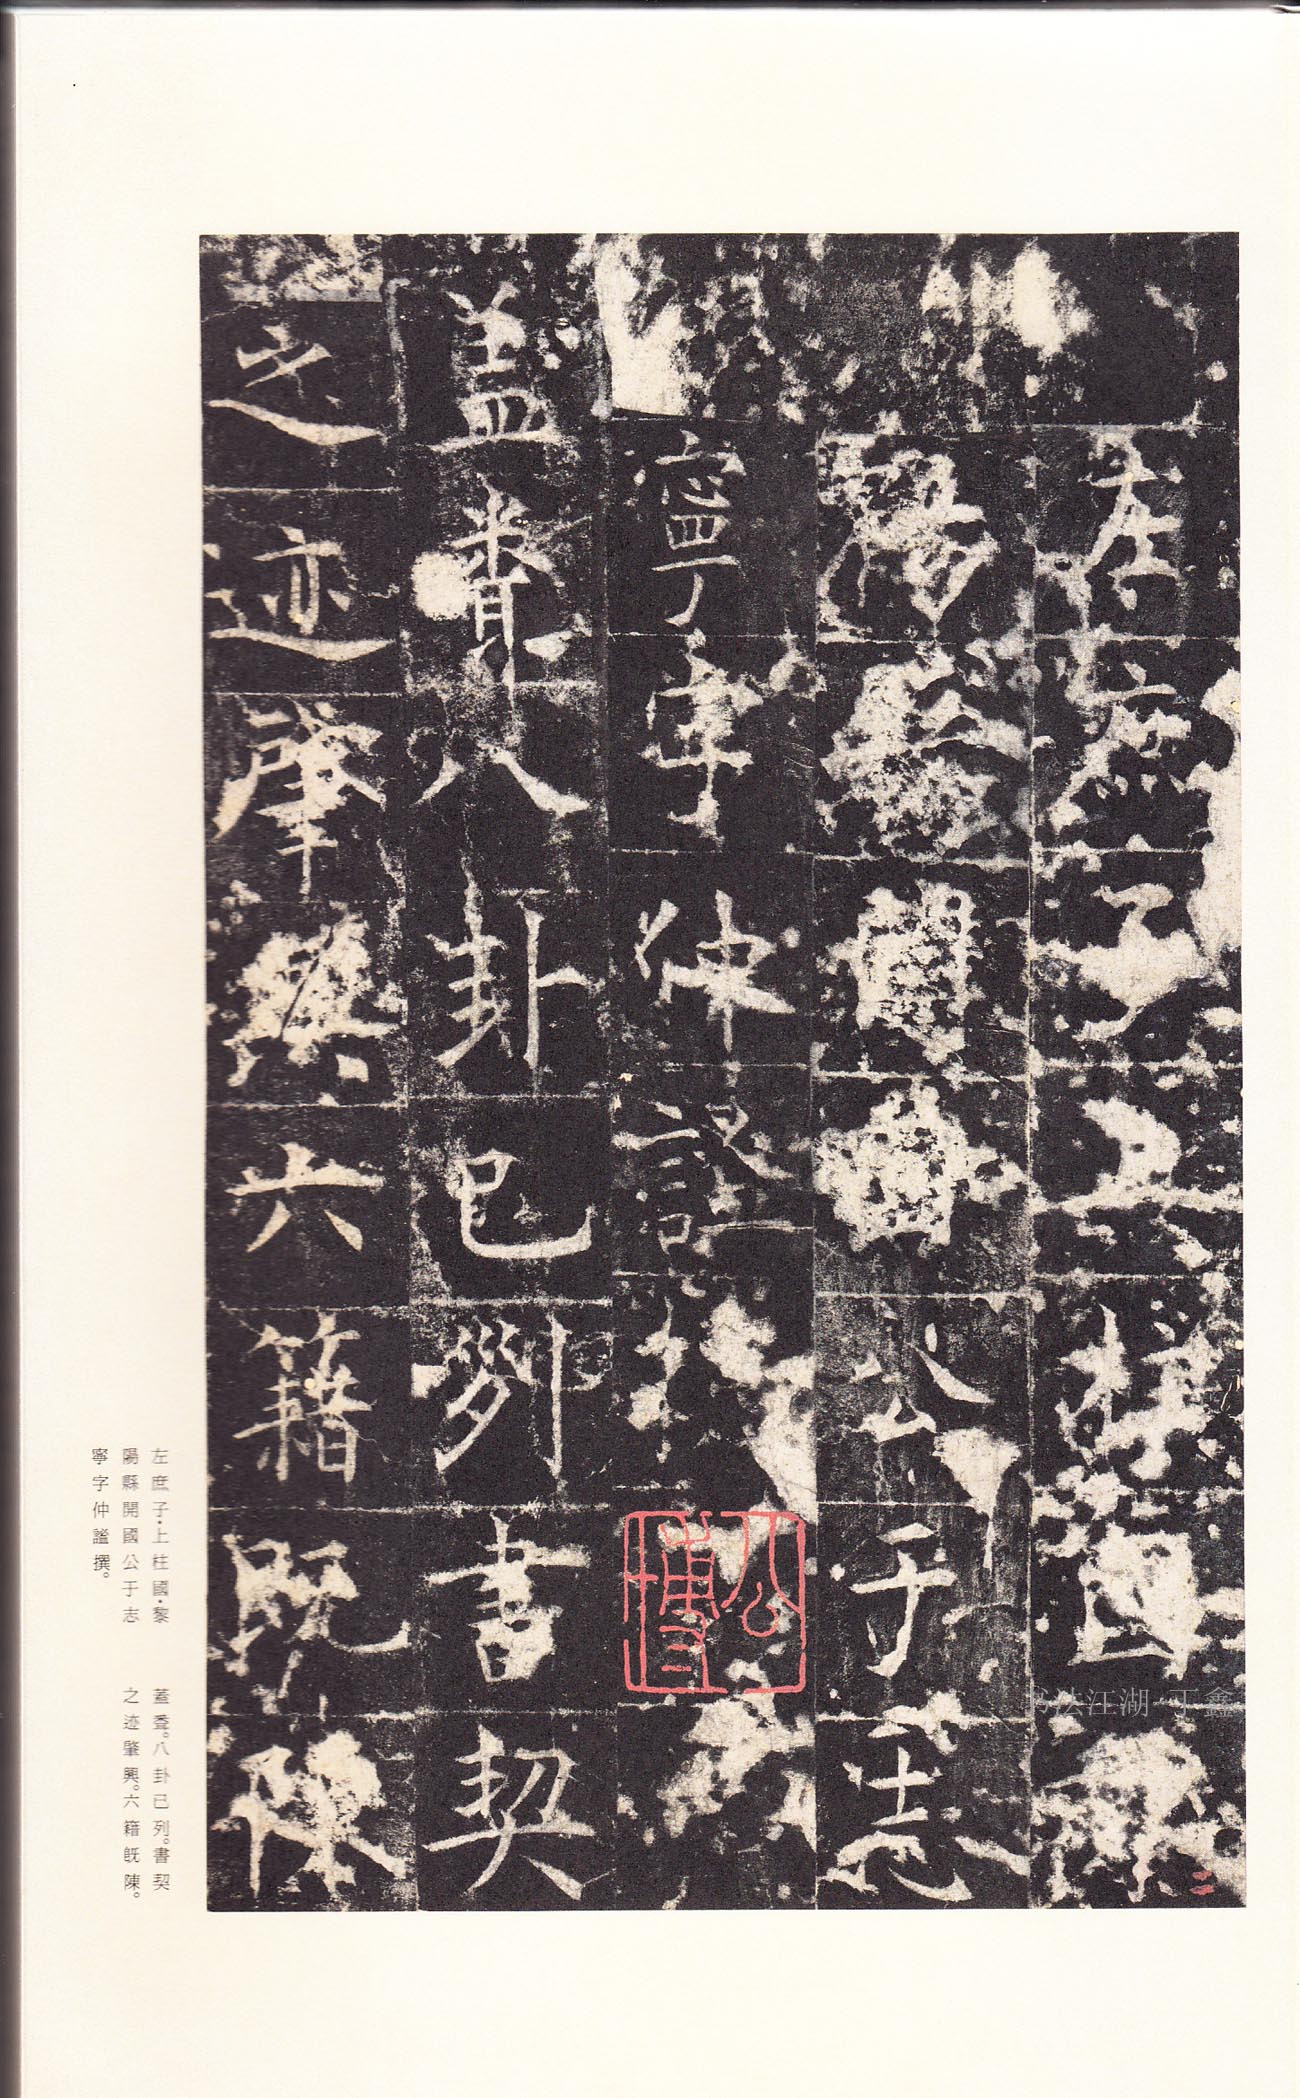 左庶子上柱國黎
陽縣開國公于志
寧字仲謐撰
蓋聞八卦已列書契
之迹肇興六籍既陳
公博
二
书法江湖·丁鑫
左庶子·上柱國·黎
陽縣開國公于志
寧字仲謐撰。
蓋聞。八卦已列。書契
之迹肇興。六籍既陳。